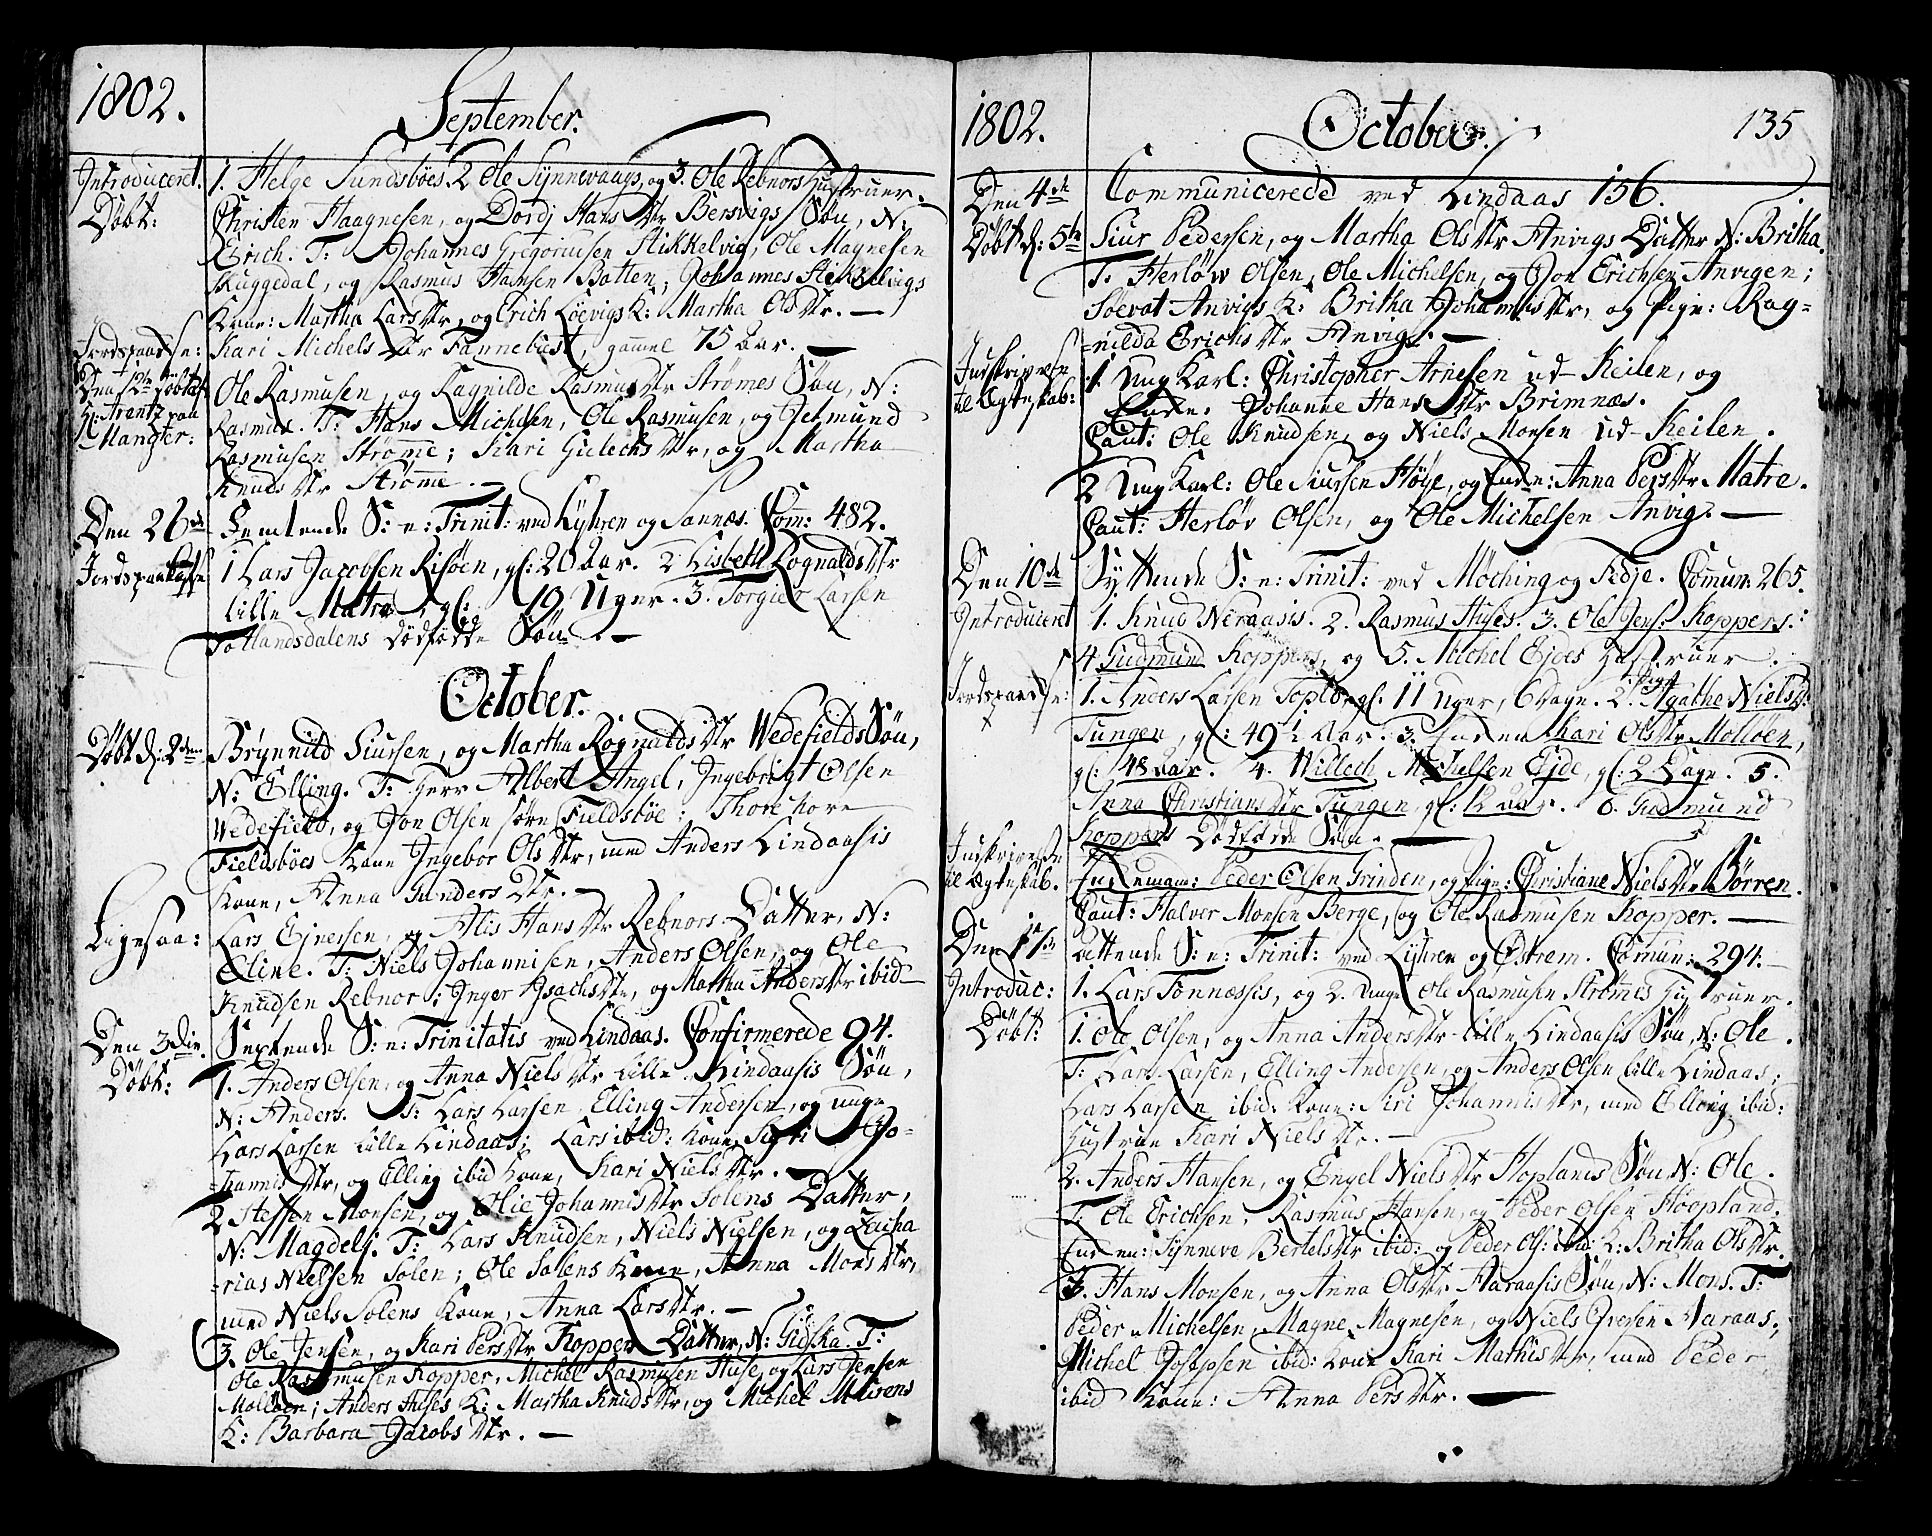 1802.
September.
Introduceret. 1. Helge Sundsböes. 2 Ole Synnevaags, og 3. Ole Rebnors Hustruer.
Döbt: Christen Haagnesen, og Dordj Hans Dtr Bersvigs Sön, N:
Erich. T: Johannes Gregoriusen Stikkelvig, Ole Magnesen
Skuggedal, og Rasmus Hansen Batten; Johannes Stikkelvigs
Kone: Martha Lars Dtr, og Erich Löevigs K: Martha Ols Dtr. —
Jordspaakaste: Kari Michels Dtr Fannebust, gammel 75 Aar. —
Den 12te Döbt af Hr: Arentz paa Mangter: Ole Rasmusen, og Ragnilde Rasmus Dtr Strömes Sön, N:
Rasmus. T: Hans Michelsen, Ole Rasmusen, og Jetmund
Rasmusen Strömme; Kari Gulechs Dtr, og Martha
Knuds Dtr Strömme. —
Den 26de Femtende S: e: Trinit: ved Lyhren og Sannæs. Com: 482.
Jordspaakaste 1 Lars Jacobsen Risöen, gl: 20 Aar. 2 Lisbeth Rognalds Dtr
lille Matre, gl: 19 Uger. 3. Torgier Larsen
Tollandsdalens Dödfödte Sön. —
October.
Döbt d: 2den Brynnild Siursen, og Martha Rognalds Dtr Wedefields Sön,
N: Elling. T: Herr Albert Angel, Ingebrigt Olsen
Wedefield, og Jon Olsen söre Fieldsböe; Thore nore
Fieldsböes Kone Ingebor Ols Dtr, med Anders Lindaasis
Kone, Anna Gunders Dtr. —
Ligesaa: Lars Ejnersen, og Alis Hans Dtr Rebnors Datter, N:
Eline. T: Niels Johannisen, Anders Olsen, og Ole
Knudsen Rebnor; Inger Isachs Dtr, og Martha Anders Dtr ibid
Den 3die. Sextende S: e: Trinitatis ved Lindaas. Confirmerede 94.
Döbt: 1. Anders Olsen, og Anna Niels Dtr lille Lindaasis Sön,
N: Anders. T: Lars Larsen, Elling Andersen, og unge
Lars Larsen lille Lindaas; Lars ibid: Kone, Sigri Jo-
=hannis Dtr, og Elling ibid Kone, Kari Niels Dtr. —
2 Steffen Monsen, og Olie Johannis Dtr Solens Datter,
N: Magdeli. T: Lars Knudsen, Niels Nielsen, og Zacha
=rias Nielsen Solen; Ole Solens Kone, Anna Mons Dtr,
med Niels Solens Kone, Anna Lars Dtr. —
3. Ole Jensen, og Kari Pers Dtr Kopper Datter, N: Gidska. T:
Ole Rasmusen Kopper, Michel Rasmusen Huse, og Lars Jensen
Mollöen; Anders Huses K: Martha Knuds Dtr, og Michel
K: Barbara Jacobs Dtr. —
1802.
October.
135
Den 4de Communicerede ved Lindaas 156.
Döbt d: 5te Siur Pedersen, og Martha Ols Dtr Anvigs Datter N: Britha.
T: Herlöw Olsen, Ole Michelsen, og Jon Erichsen Anvigen;
Soevat Anvigs K: Britha Johannis Dtr, og Pige: Rag=
=nilda Erichs Dtr Anvig. —
Indskrivelse til Ægteskab: 1. Ung Karl: Christopher Arnesen ud Keilen, og
Enke. Johanne Hans Dtr Brimnæs.
Caut: Ole Knudsen, og Niels Monsen ud Keilen.
2 Ung Karl: Ole Siursen Höye, og Enke: Anna Pers Dtr Matre.
Caut: Herlöv Olsen, og Ole Michelsen Anvig. —
Den 10de Syttende S: e: Trinit: ved Möching og Fedje. Comun: 265.
Introduceret 1. Knud Neraasis. 2. Rasmus Huses. 3. Ole Jens: Koppers.
4 Gudmund Koppers, og 5. Michel Ejdes Hustruer.
Jordspaakaste: 1. Anders Larsen Toplo gl. 11 Uger, 6 Dage. 2. Pige Agathe Niels D:
Tungen, gl: 49 1/2 Aar. 3. Enken Kari Ols Dtr Mollöen,
gl: 48 Aar. 4. Willech Michelsen Ejde, gl: 2 Dage. 5.
Anna Christians Dtr Tungen, gl: 12 Aar. 6. Gudmund
Koppers Dödfödte Sön. —
Indskrivelse til Ægteskab. Enkemand: Peder Olsen Grinden, og Pige: Christiane Niels Dtr Börren.
Caut: Halver Monsen Berge, og Ole Rasmusen Kopper. —
Den 17de Attende S: e: Trinit: ved Lyhren og Östrem. Comun: 294. —
Introduc: 1. Lars Tonnæssis, og 2. Unge Ole Rasmusen Strömmes Hustruer.
Döbt: 1. Ole Olsen, og Anna Anders Dtr lille Lindaasis Sön, N: Ole.
T: Lars Larsen, Elling Andersen, og Anders Olsen lille Lindaas;
Lars Larsen ibid: Kone: Siri Johannis Dtr, med Elling ibid:
Hustrue Kari Niels Dtr. —
2. Anders Hansen, og Engel Niels Dtr Hoplands Sön, N: Ole.
T: Ole Erichsen, Rasmus Hansen, og Peder Olsen Hoopland.
Enken: Synneve Bertels Dtr ibid: og Peder Ols: ibid: K: Britha Ols Dtr.
3. Hans Monsen, og Anna Ols Dtr Aaraasis Sön, N: Mons. T:
Peder Michelsen, Magne Magnesen, og Niels Aaraas;
Michel Josepsen ibid: Kone Kari Mathis Dtr, med Peder
ibid Kone: Anna Pers Dtr. —